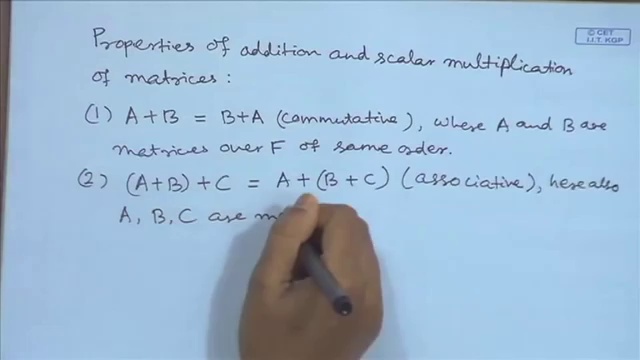 © CET
I.I.T. KGP
Properties of addition and scalar multiplication
of matrices :
(1) A+B = B+A (commutative), where A and B are
matrices over F of same order.
(2) (A+B)+C = A+(B+C) (associative), here also
A, B, C are m